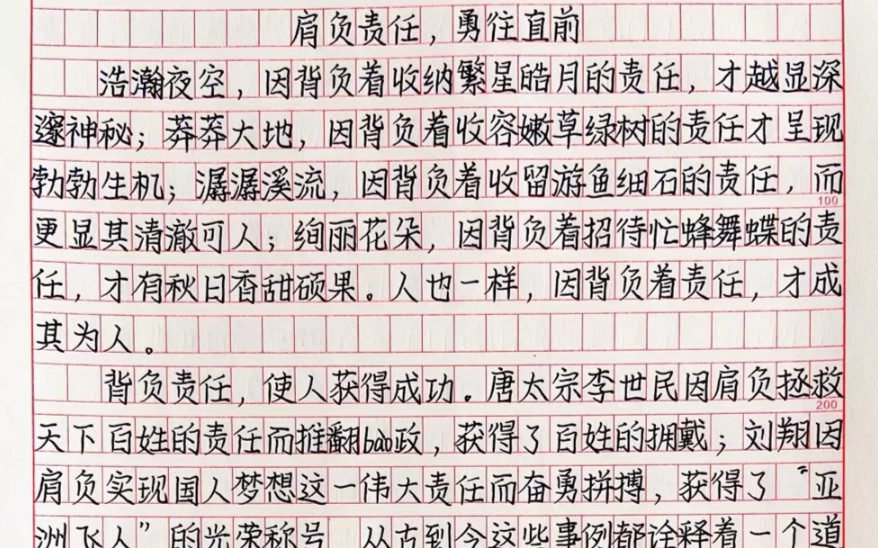 肩负责任，勇往直前
浩瀚夜空，因背负着收纳繁星皓月的责任，才越显深
邃神秘；莽莽大地，因背负着收容嫩草绿树的责任才呈现
勃勃生机；潺潺溪流，因背负着收留游鱼细石的责任，而
100
更显其清澈可人；绚丽花朵，因背负着招待忙蜂舞蝶的责
任，才有秋日香甜硕果。人也一样，因背负着责任，才成
其为人。
背负责任，使人获得成功。唐太宗李世民因肩负拯救
200
天下百姓的责任而推翻bao政，获得了百姓的拥戴；刘翔因
肩负实现国人梦想这一伟大责任而奋勇拼搏，获得了“亚
洲飞人”的光荣称号。从古到今这些事例都诠释着一个道